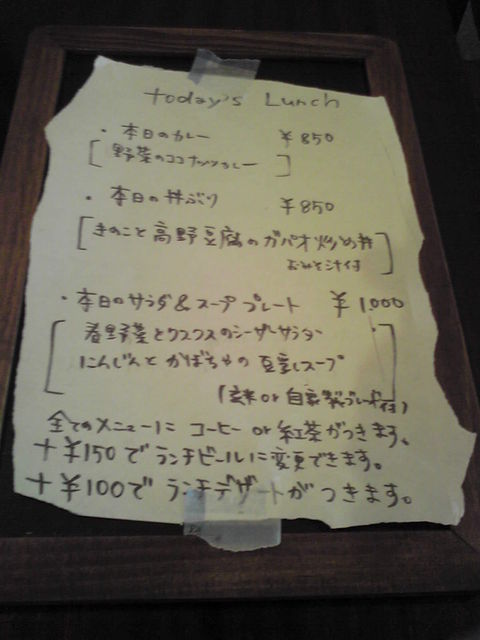 today's Lunch
・本日のカレー ¥850
[野菜のココナッツカレー]
・本日の丼ぶり ¥850
[きのこと高野豆腐のガパオ炒め丼
おみそ汁付]
・本日のサラダ&スーププレート ¥1,000
[春野菜とクスクスのシーザーサラダ
にんじんとかぼちゃの豆乳スープ]
(玄米 or 自家製ブレッド付)
全てのメニューに コーヒー or 紅茶がつきます。
+¥150で ランチビールに変更できます。
+¥100で ランチデザートがつきます。